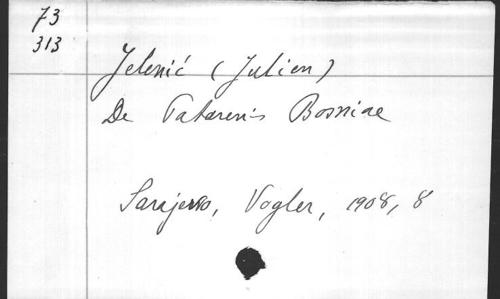 73
313
Jelenić (Julien)
De Patarenis Bosniae
Sarajevo, Vogler, 1908, 8